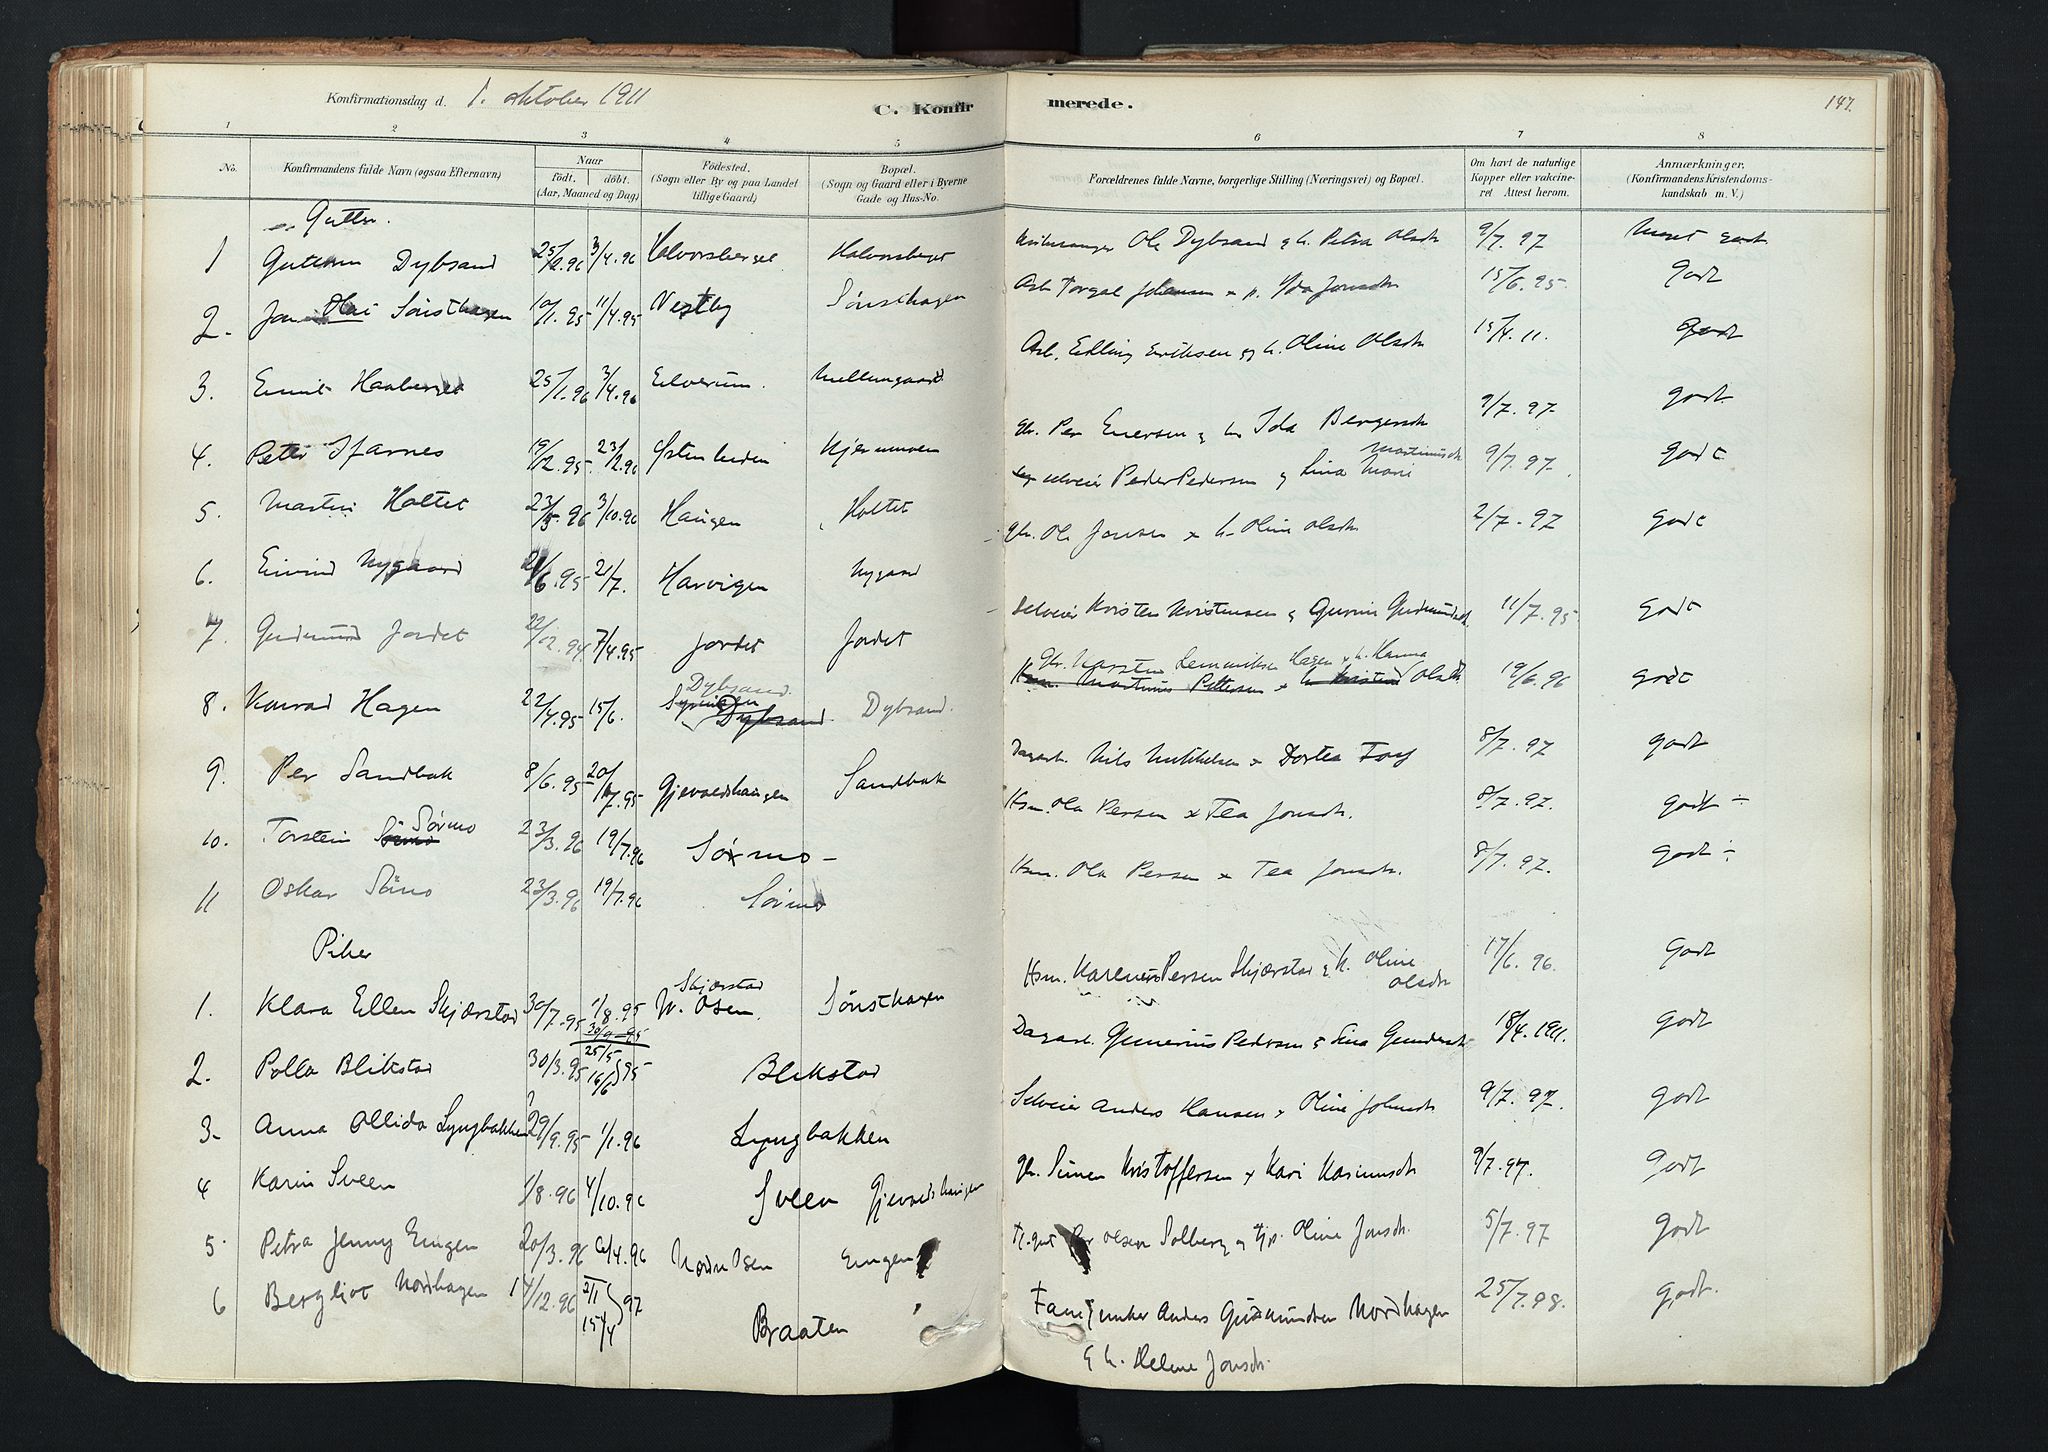 Konfirmationsdag d. 1. oktober 1911
C. Konfirmerede.
147.
1 2 3 4 5 6 7 8
No.
Konfirmandens fulde Navn (ogsaa Efternavn)
Naar
født. døbt.
(Aar, Maaned og Dag)
Fødested.
(Sogn eller By og paa Landet
tillige Gaard.)
Bopæl.
(Sogn og Gaard eller i Byerne
Gade og Hus-No.
Forældrenes fulde Navne, borgerlige Stilling (Næringsvei) og Bopæl.
Om havt de naturlige
Kopper eller vakcine-
ret Attest herom.
Anmærkninger,
(Konfirmandens Kristendoms-
kundskab m. V.)
Gutter.
1 Guttorm Dybsand 25/2.96 3/4.96 Halvorsberget Halvorsberget Ole Dybsand g h. Petra Olsdtr 9/7.97 Meget godt
2. Jon Olai Sønsthagen 10/1.95 11/4.95 Vestby Sønsthagen Arb Torgal Johansen x p. Ida Jonsdtr 15/6.95. godt
3. Emil Haaberget 25/1.96 3/4.96 Elverum. Mellemgaard Arb. Edling Eriksen og h. Oline Olsdtr 15/4.11. godt
4. Peter Starnes 19/12.95 23/2.96 Østenheden Kjernmoen Gbr. Per Enersen g h Ida Bergersdtr 9/7.97 godt
5. Martin Holtet 23/5.96 3/10.96 Haugen Holtet selveier Peder Pedersen g Lina Marie Martinusdtr 9/7.97. godt
6. Eivind Nygaard 21/6.95 21/7. Harvigen Nygaard Gbr. Ole Jonsen x h. Oline Olsdtr. 2/7.97 godt
7. Gudmund Jordet 22/12.94 7/4.95 Jordet Jordet Selveier Kristen Kristensen g Gunnie Gudmundsdtr. 11/7.95 godt
8. Konrad Hagen 22/4.95 15/6. Dybsand. Dybsand Dybsand. Gbr. Karsten Hagen x h. Hanna Martinus Pettersen x Olsdtr. 19/6.96 godt
9. Per Sandbak 8/6.95 20/7.95 Gjevaldshaugen Sandbak Dagarb. Nils Mikkelsen x Dortea 8/7.97 godt
10. Torstein Sørmo 23/3.96 19/7.96 Sørmo – Hsm. Ola Persen x Tea Jonsdtr. 8/7.97. godt ÷
11 Oskar Sörmo 23/3.96 19/7.96 Sørmo Hsm. Ola Persen x Tea Jonsdtr. 8/7.97. godt ÷
Piker
1. Klara Ellen Skjærstad 30/7.95 1/8.95 Skjærstad N. Osen. Sønsthagen Hsm. Karenus Persen Skjærstad g h. Oline Olsdtr 17/6.96. godt
2. Palla Blikstad 30/3.95 25/5 16/6 95 Blikstad Dagarb. Gunerius Pedersen g Lina Gundersdtr 18/4.1911. godt
3. Anna Ollida Lyngbakken 29/9.95 1/1.96 Lyngbakken Selveier Anders Hansen x Oline Johnsdtr 9/7.97. godt
4 Karin Sveen 1/8.96 4/10.96 Sveen Gjevaldshaugen Gbr. Simen Kristoffersen x Kari Kasmusdtr 9/7.97. godt
5. Petra Jenny Enigen 20/3.96 6/4.96 Nordre Osen Enigen Per Olsen Solberg og Oline Jonsdtr. 5/7.97 godt
6 Bergliot Nordhagen 14/12.96 2/1 15/4 97 Braaten Fanejunker Anders Gudmundsen Nordhagen 25/7.98. godt.
g h. Helene Jonsdtr.